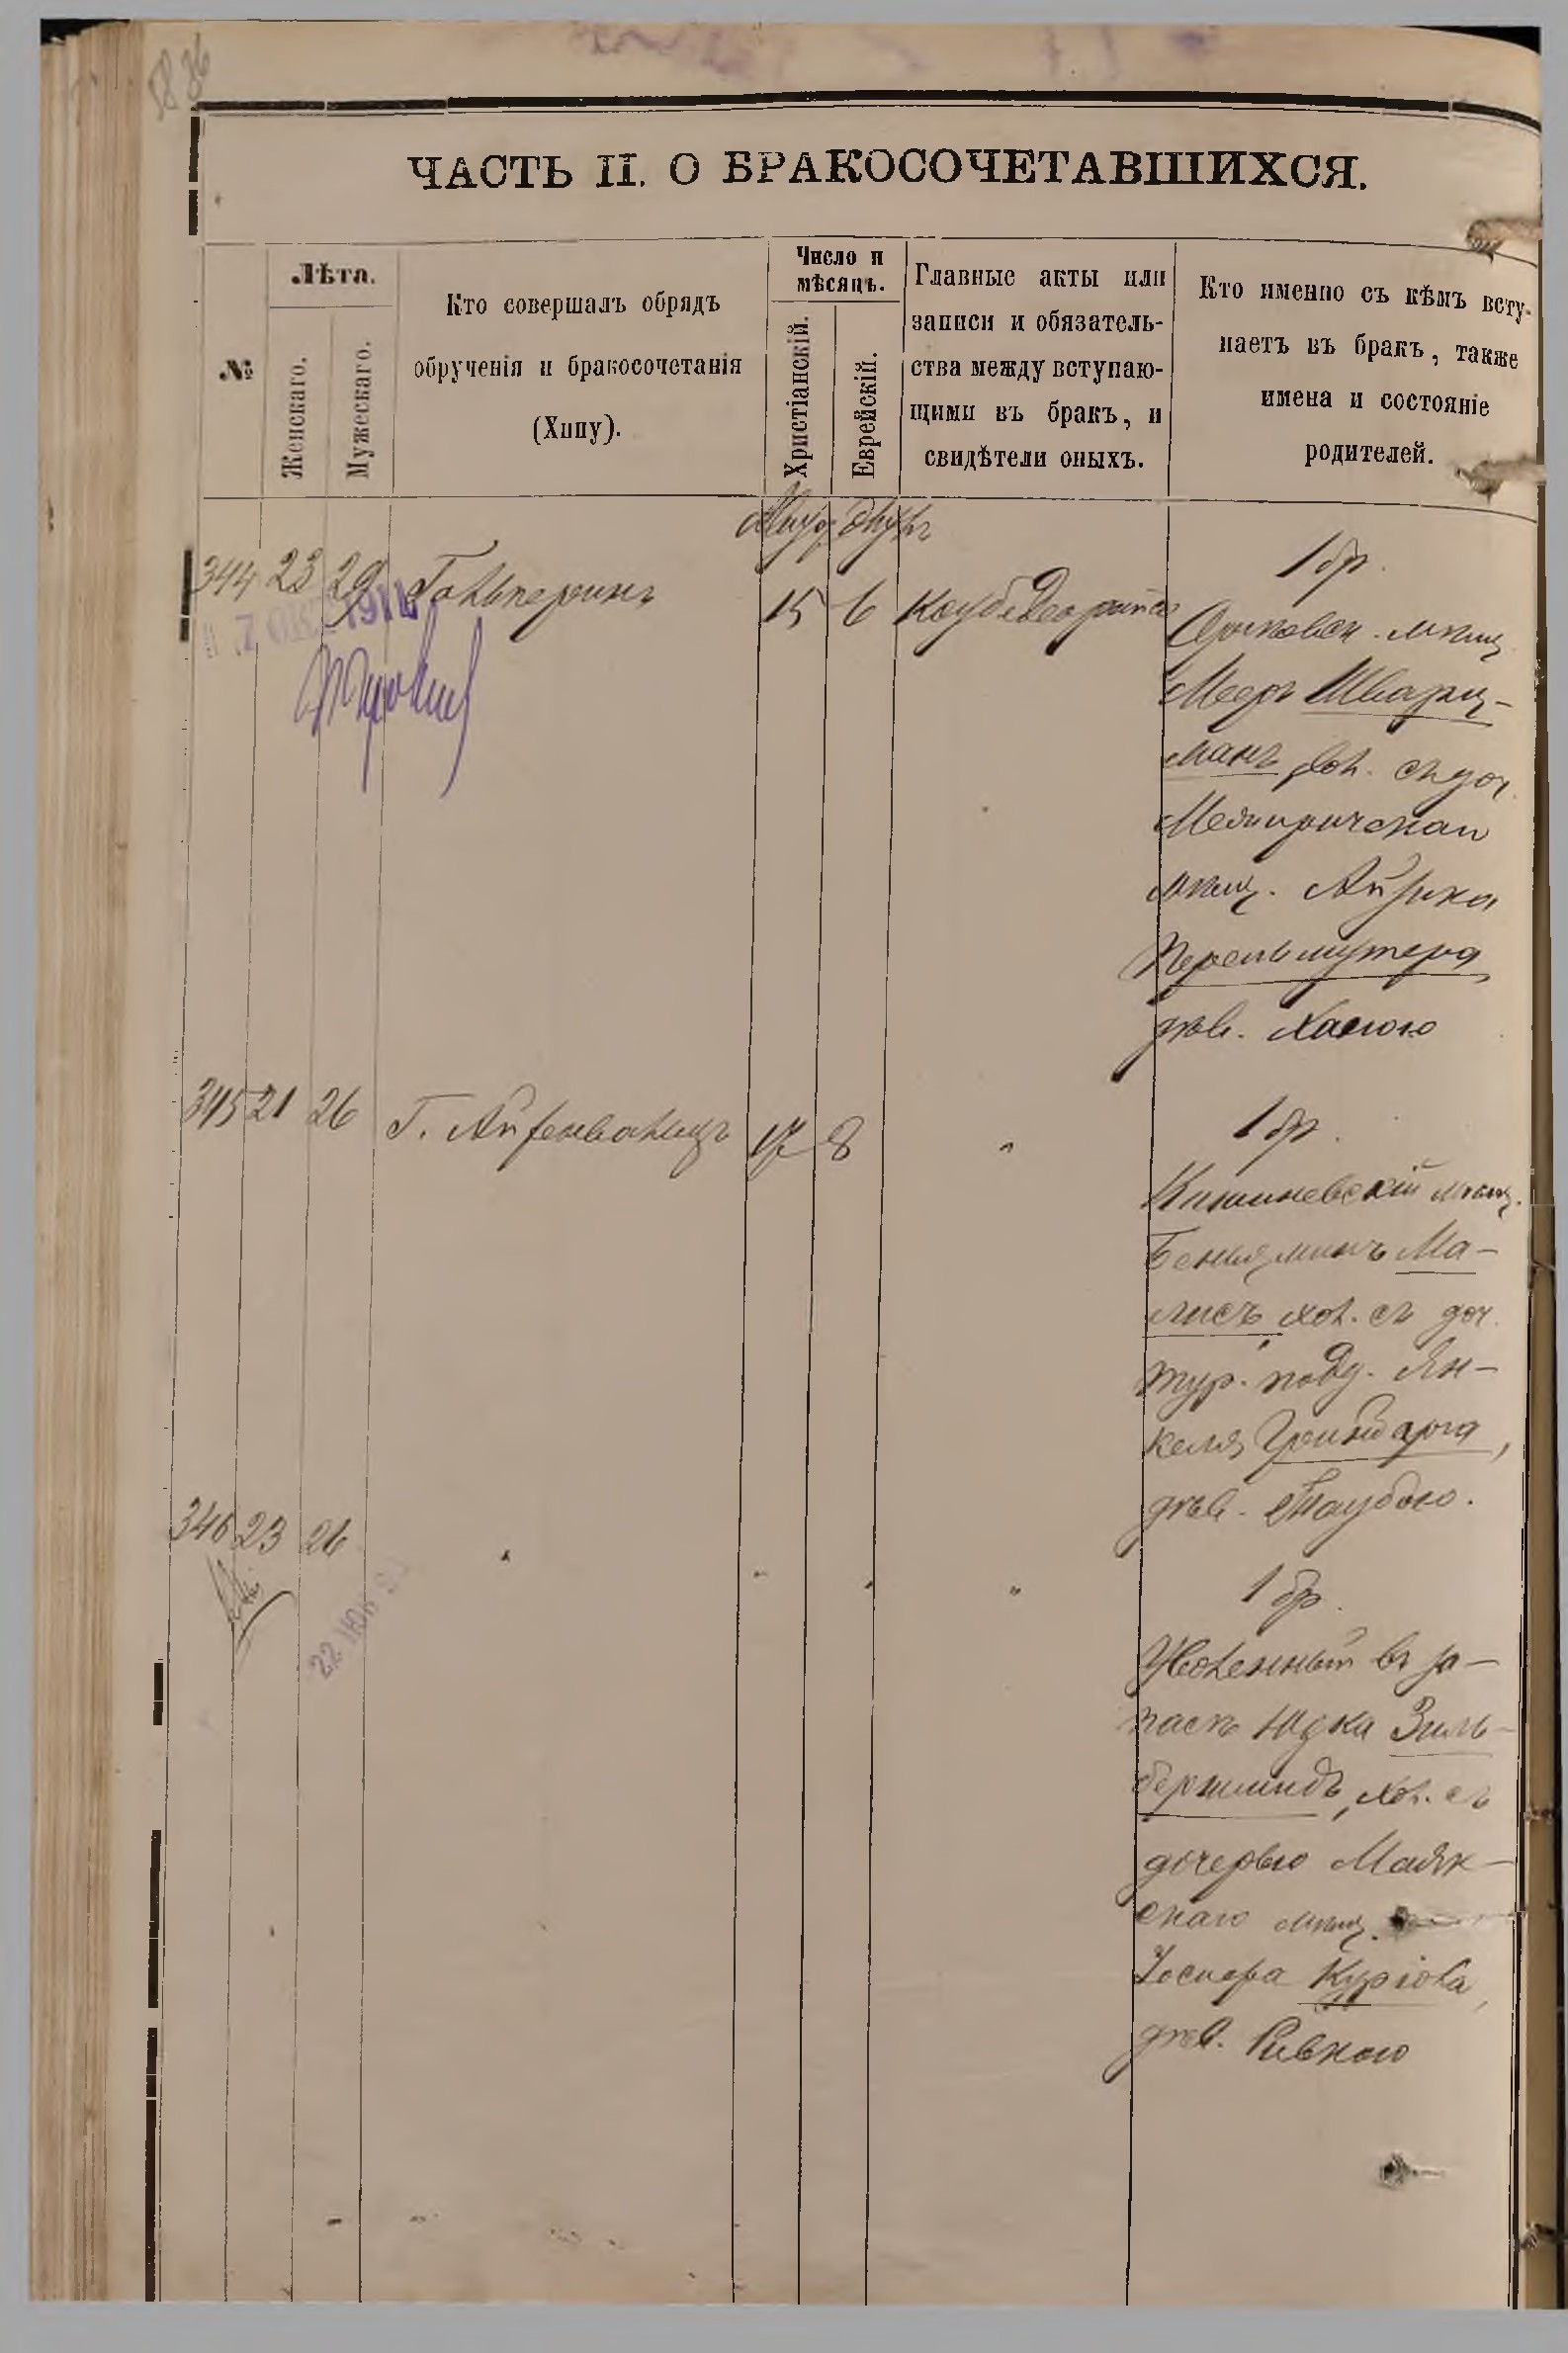 ЧАСТЬ II. О БРАКОСОЧЕТАВШИХСЯ.
№
Лѣта.
Женскаго.
Мужескаго.
Кто совершалъ обрядъ
обрученія и бракосочетанія
(Хипу).
Число и
мѣсяцъ.
Христіанскій.
Еврейскій.
Главные акты или
записи и обязатель-
ства между вступаю-
щими въ бракъ, и
свидѣтели оныхъ.
Кто именно съ кѣмъ всту-
паетъ въ бракъ, также
имена и состояніе
родителей.
344 23 29 Гальперинъ 15 6
1 бр.
мѣщ.
Мееръ Шварц-
манъ хол. съ доч.
Межиричскаго
мѣщ. Айзика
Перельмутера,
дѣв. Хасею
345 21 26 Г. Айзенвалицъ 17 8 "
1 бр.
Кишиневскій мѣщ.
Беньяминъ Ма-
лисъ, хол. съ доч.
тур. подд. Ян-
келя Гринбарга,
дѣв. Таубою.
346 23 26 " " " "
22 ЮН
1 бр.
Уволенный въ за-
пасъ Юдка Зиль-
бершмидъ, хол. съ
дочерью Маяк-
скаго мѣщ.
Іосифа Курiова,
дѣв. Ривкою